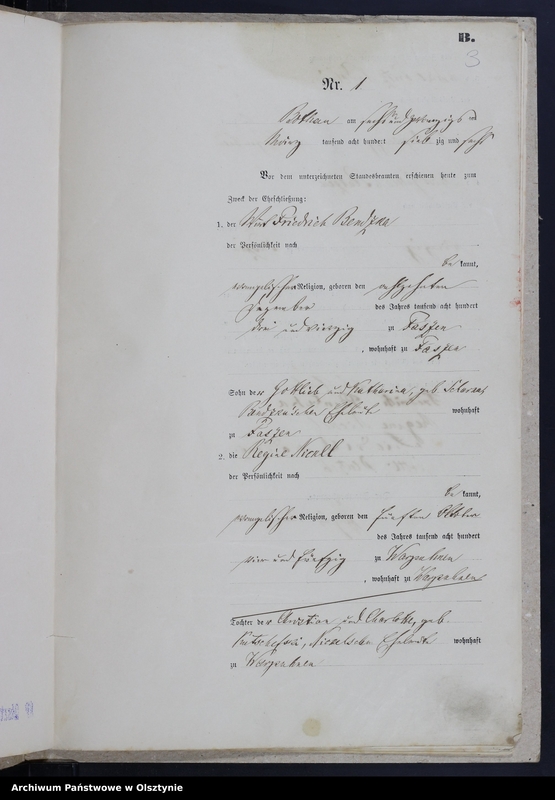 B.
3
Nr. 1
am sechs und zwanzigsten
März tausend acht hundert sieb zig und sechs
Vor dem unterzeichneten Standesbeamten erschienen heute zum
Zweck der Eheschließung:
1. der Wirt Friedrich
der Persönlichkeit nach
be kannt,
evangelischer Religion, geboren den achtzehnten
Dezember des Jahres tausend acht hundert
drei und vierzig zu Faszen
, wohnhaft zu Faszen
Sohn der Gottlieb und Katharina, geb.
Eheleute wohnhaft
zu Faszen
2. die Regine
der Persönlichkeit nach
be kannt,
evangelischer Religion, geboren den fünften Oktober
des Jahres tausend acht hundert
vier und fünfzig zu
, wohnhaft zu
Tochter der Christian und Charlotte, geb.
Eheleute wohnhaft
zu
Archiwum Państwowe w Olsztynie